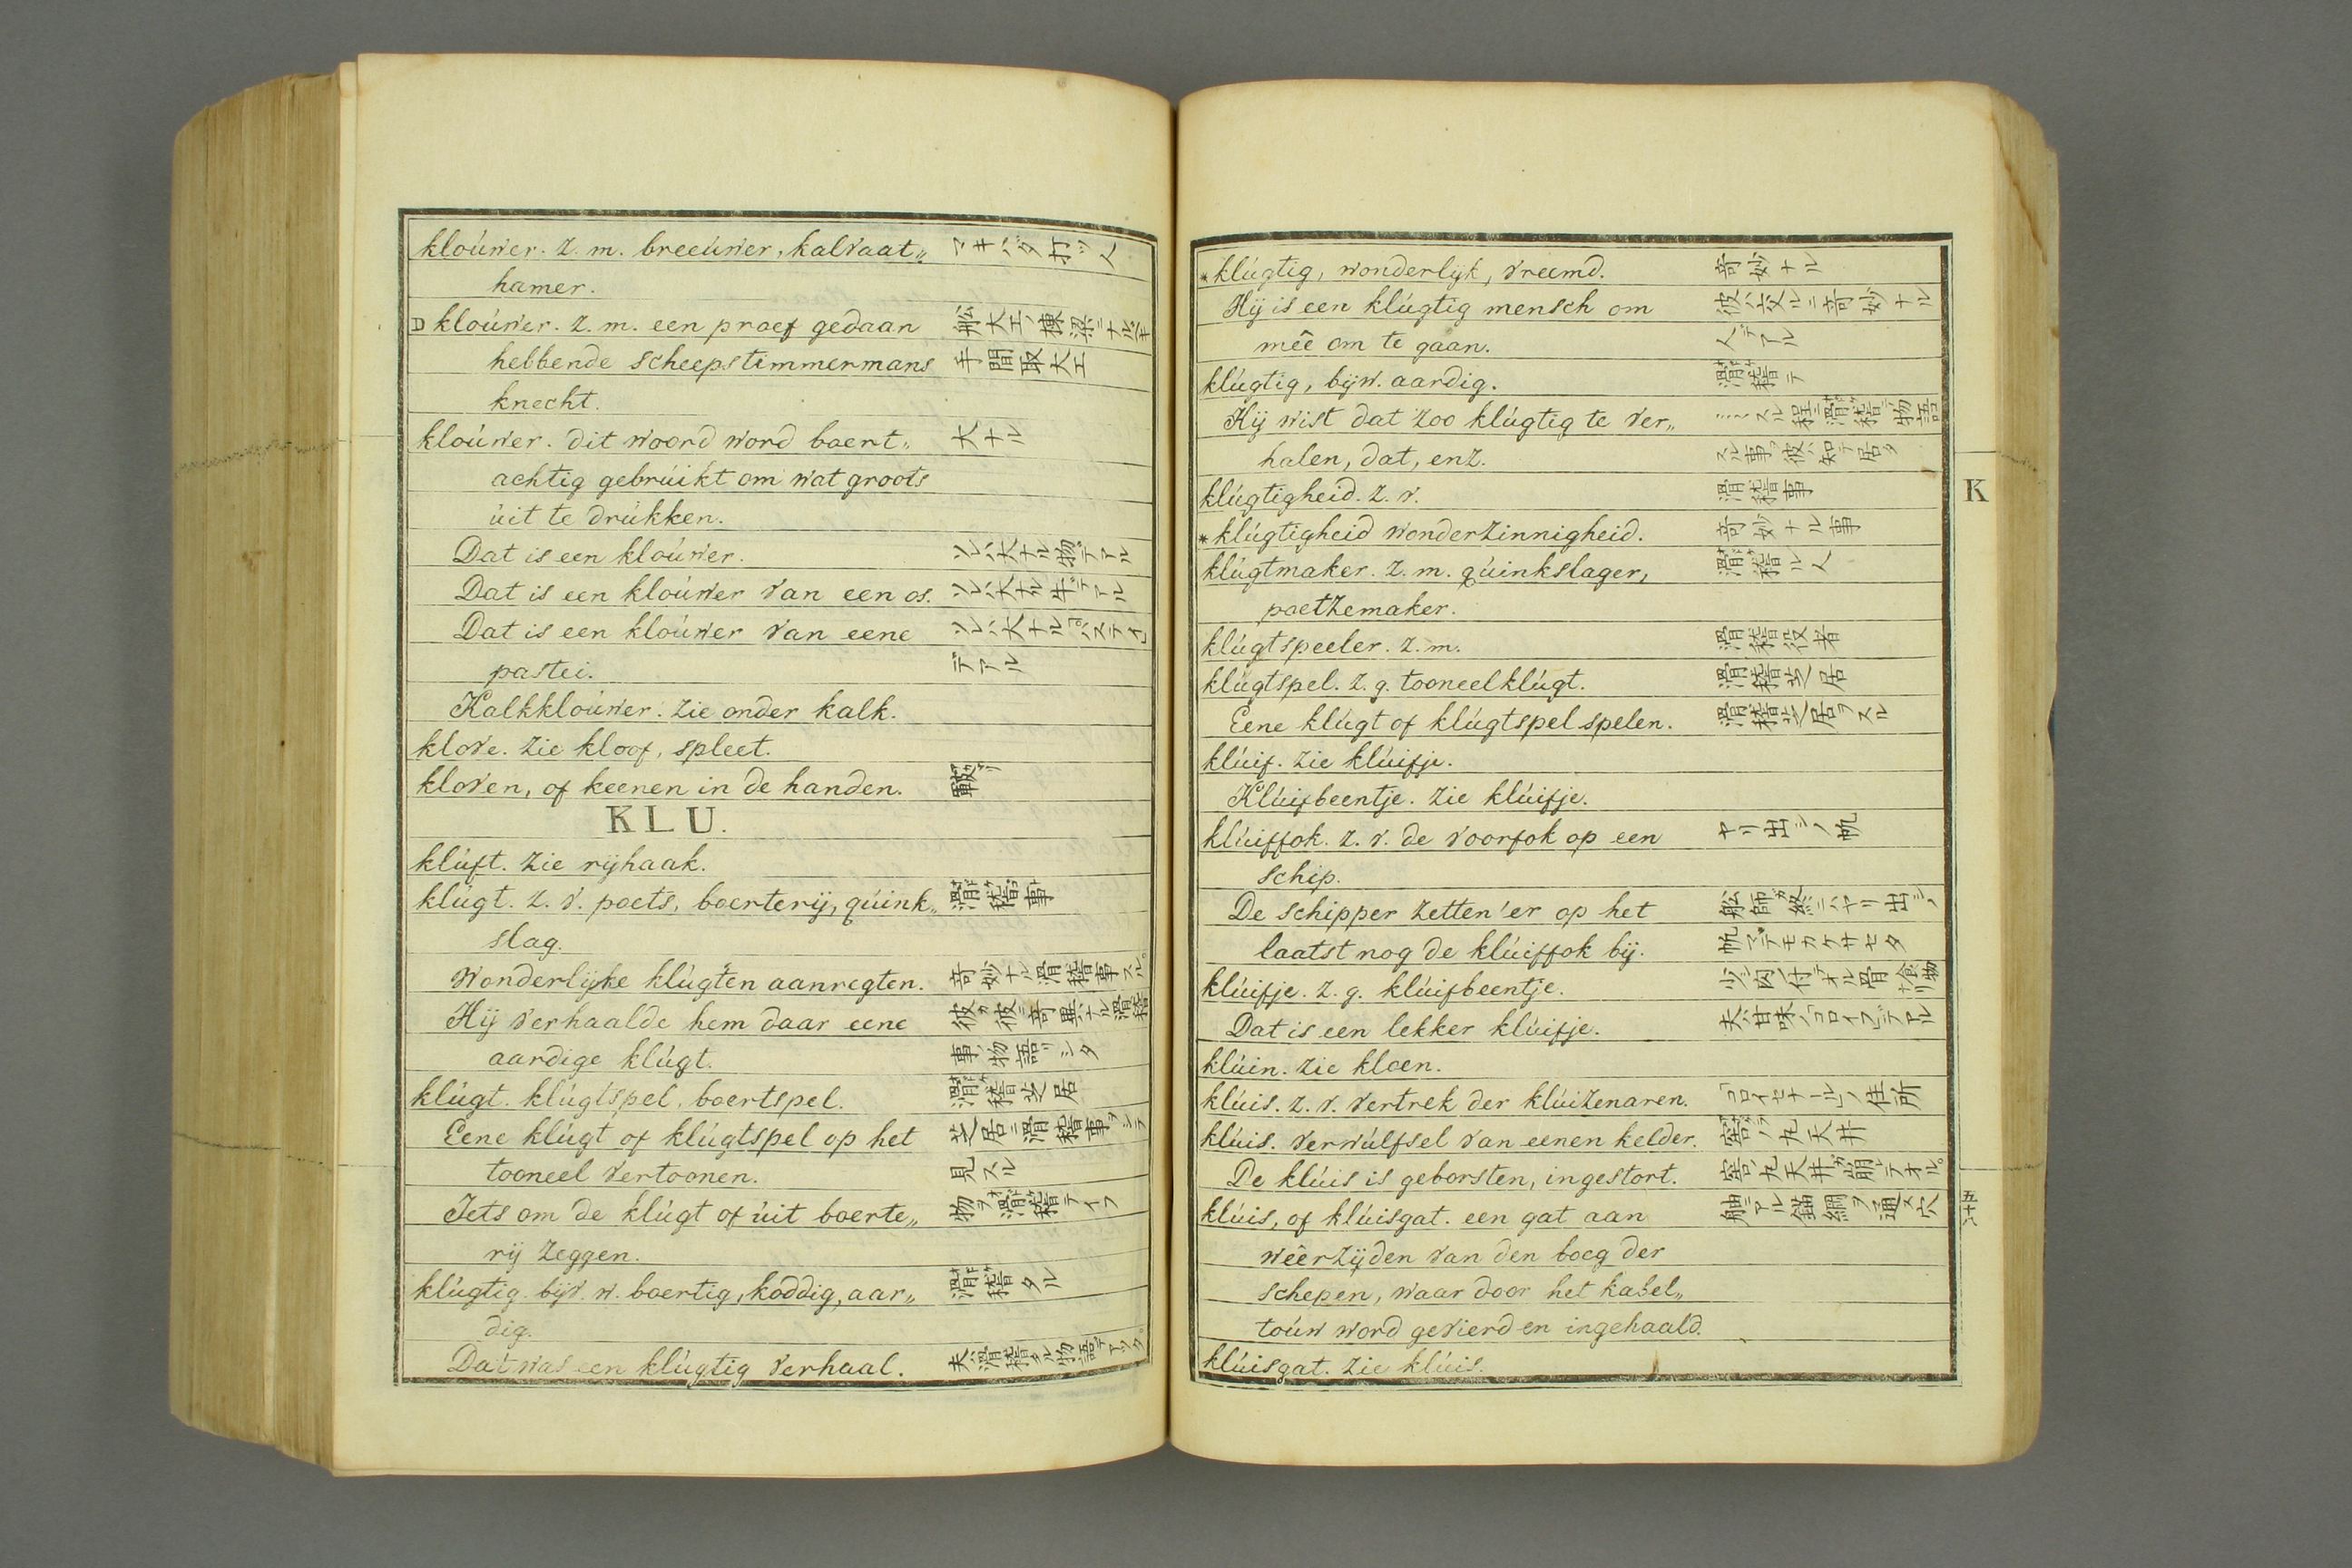 kloúwer. z. m. breeúwer, kalvaat„ マキハダ打ツ人
hamer.
D kloúwer. z. m. een proef gedaan 舩大工ノ棟梁ニナルヘキ
hebbende scheepstimmermans 手間取大工
knecht.
kloúwer. dit woord word boert„ 大ナル
achtig gebrúikt om wat groots
úit te drúkken.
Dat is een kloúwer. ソレハ大ナル物デアル
Dat is een kloúwer van een os. ソレハ大ナル牛デアル
Dat is een kloúwer van eene ソレハ大ナル「パステイ」
pastei. デアル
Kalkkloúwer. zie onder kalk.
klove. zie kloof, spleet.
kloven, of keenen in de handen. 皸
KLU.
klúft. zie rijhaak.
klúgt. z. v. poets, boerterij, qúink„ 滑稽事
slag.
Wonderlijke klúgten aanregten. 奇妙ナル滑稽事スル。
Hij verhaalde hem daar eene 彼ガ彼ニ奇異ナル滑稽
aardige klúgt. 事ノ物語リシタ
klúgt. klúgtspel, boertspel. 滑稽芝居
Eene klúgt of klúgtspel op het 芝居ニ滑稽事ヲシテ
tooneel vertoonen. 見スル
Iets om de klúgt of úit boerte„ 物ヲ滑稽テイフ
rij zeggen.
klúgtig. bijv. w. boertig, koddig, aar„ 滑稽タル
dig.
Dat was een klúgtig verhaal. 夫ハ滑稽タル物語デアツタ。
*klúgtig, wonderlijk, vreemd. 奇妙ナル
Hij is een klúgtig mensch om 彼ハ交ルニ奇妙ナル
mêê om te gaan. 人デアル
klúgtig, bijw. aardig. 滑稽テ
Hij wist dat zoo klúgtig te ver„ スル程ニ滑稽ニ物語
halen, dat, enz. スル事ヲ彼ハ知テ居タ
klúgtigheid. z. v. 滑稽事
*klúgtigheid wonderzinnigheid. 奇妙ナル事
klúgtmaker. z. m. qúinkslager, 滑稽ル人
poetzemaker.
klúgtspeeler. z. m. 滑稽役者
klúgtspel. z. g. tooneelklúgt. 滑稽芝居
Eene klúgt of klúgtspel spelen. 滑稽芝居ヲスル
klúif. zie klúifje.
Klúifbeentje. zie klúifje.
klúiffok. z. v. de voorfok op een ヤリ出シノ帆
schip.
De schipper zetten'er op het 舩師ガ終ニハヤリ出シノ
laatst nog de klúiffok bij. 帆マデモカケサセタ
klúifje. z. g. klúifbeentje. 少シ肉ノ付テオル骨 食物
Dat is een lekker klúifje. 夫ハ甘味「コロイフ」デアル
klúin. zie kloen.
klúis. z. v. vertrek der klúizenaren. 「コロイセナール」ノ住所
klúis. verwúlfsel van eenen kelder. 窖ノ丸天井
De klúis is geborsten, ingestort. 窖ノ丸天井ガ崩レテオル。
klúis, of klúisgat. een gat aan 舳ニアル錨綱ヲ通ス穴
wêêrzijden van den boeg der
schepen, waar door het kabel„
toúw word gevierd en ingehaald.
klúisgat. zie klúis.
K